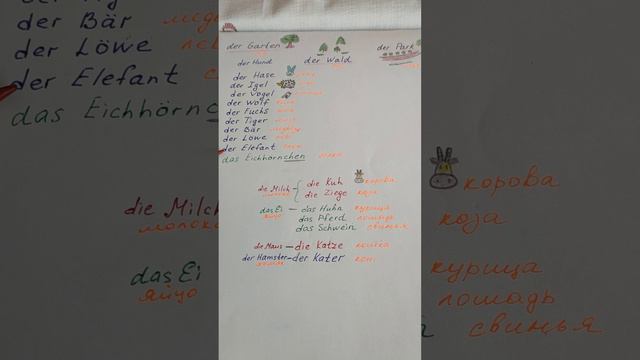 der Garten der Wald der Park
der Hund
der Hase
der Igel
der Vogel
der Wolf
der Fuchs
der Tiger
der Bär
der Löwe
der Elefant
das Eichhörnchen
die Milch - die Kuh корова
молоко die Ziege коза
das Ei - das Huhn курица
яйцо das Pferd лошадь
das Schwein свинья
die Maus - die Katze кошка
der Hamster - der Kater кот
der Bär
der Löwe
der Elefant
das Eichhörnc
die Milch
молоко
das Ei
яйцо
корова
коза
курица
лошадь
свинья